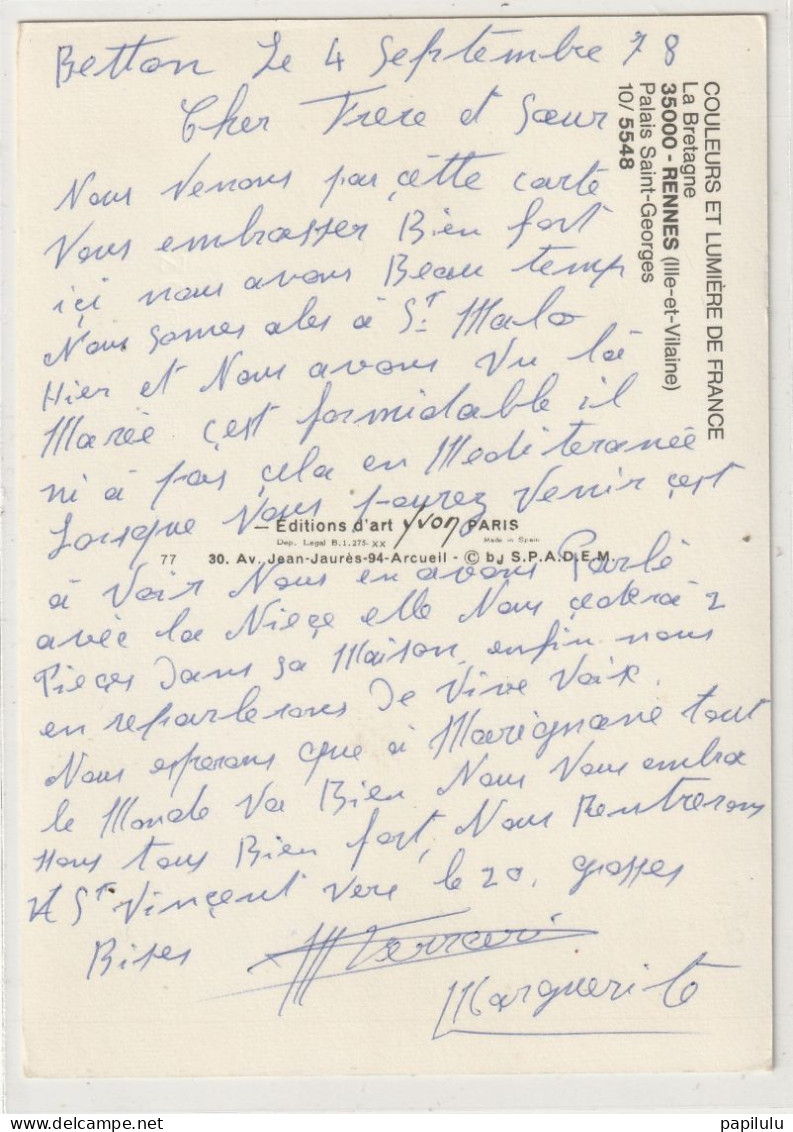 Betton Le 4 Septembre 78
Cher Frere et Sœur
Nous Venons par çètte carte
Vous embrasser Bien fort
içi nous avons Beau temp
Nous somes alés à St Malo
Hier et Nous avons Vu là
Marée çest formidable il
ni à pas çela en Mediteranée
Lorsque Vous pourez Venir çest
à Voir Nous en avons Parlé
avéc la Nièçe elle Nous çèdera 2
Pièçes Dans sa Maison, enfin nous
en reparlerons De Vive Voix.
Nous esperons que à Marignane tout
le Monde Va Bien Nous Vous embra
ssons tous Bien fort, Nous Rentrerons
A St Vinçent vere le 20. grosses
Bises
Marguerite
COULEURS ET LUMIÈRE DE FRANCE
La Bretagne
35000 - RENNES (Ille-et-Vilaine)
Palais Saint-Georges
10/ 5548
— Éditions d'art yvon PARIS
Dep. Legal B. 1.275-XX Made in Spain
77 30. Av. Jean-Jaurès-94-Arcueil - © by S.P.A.D.E.M.
papilulu
delcampe.net